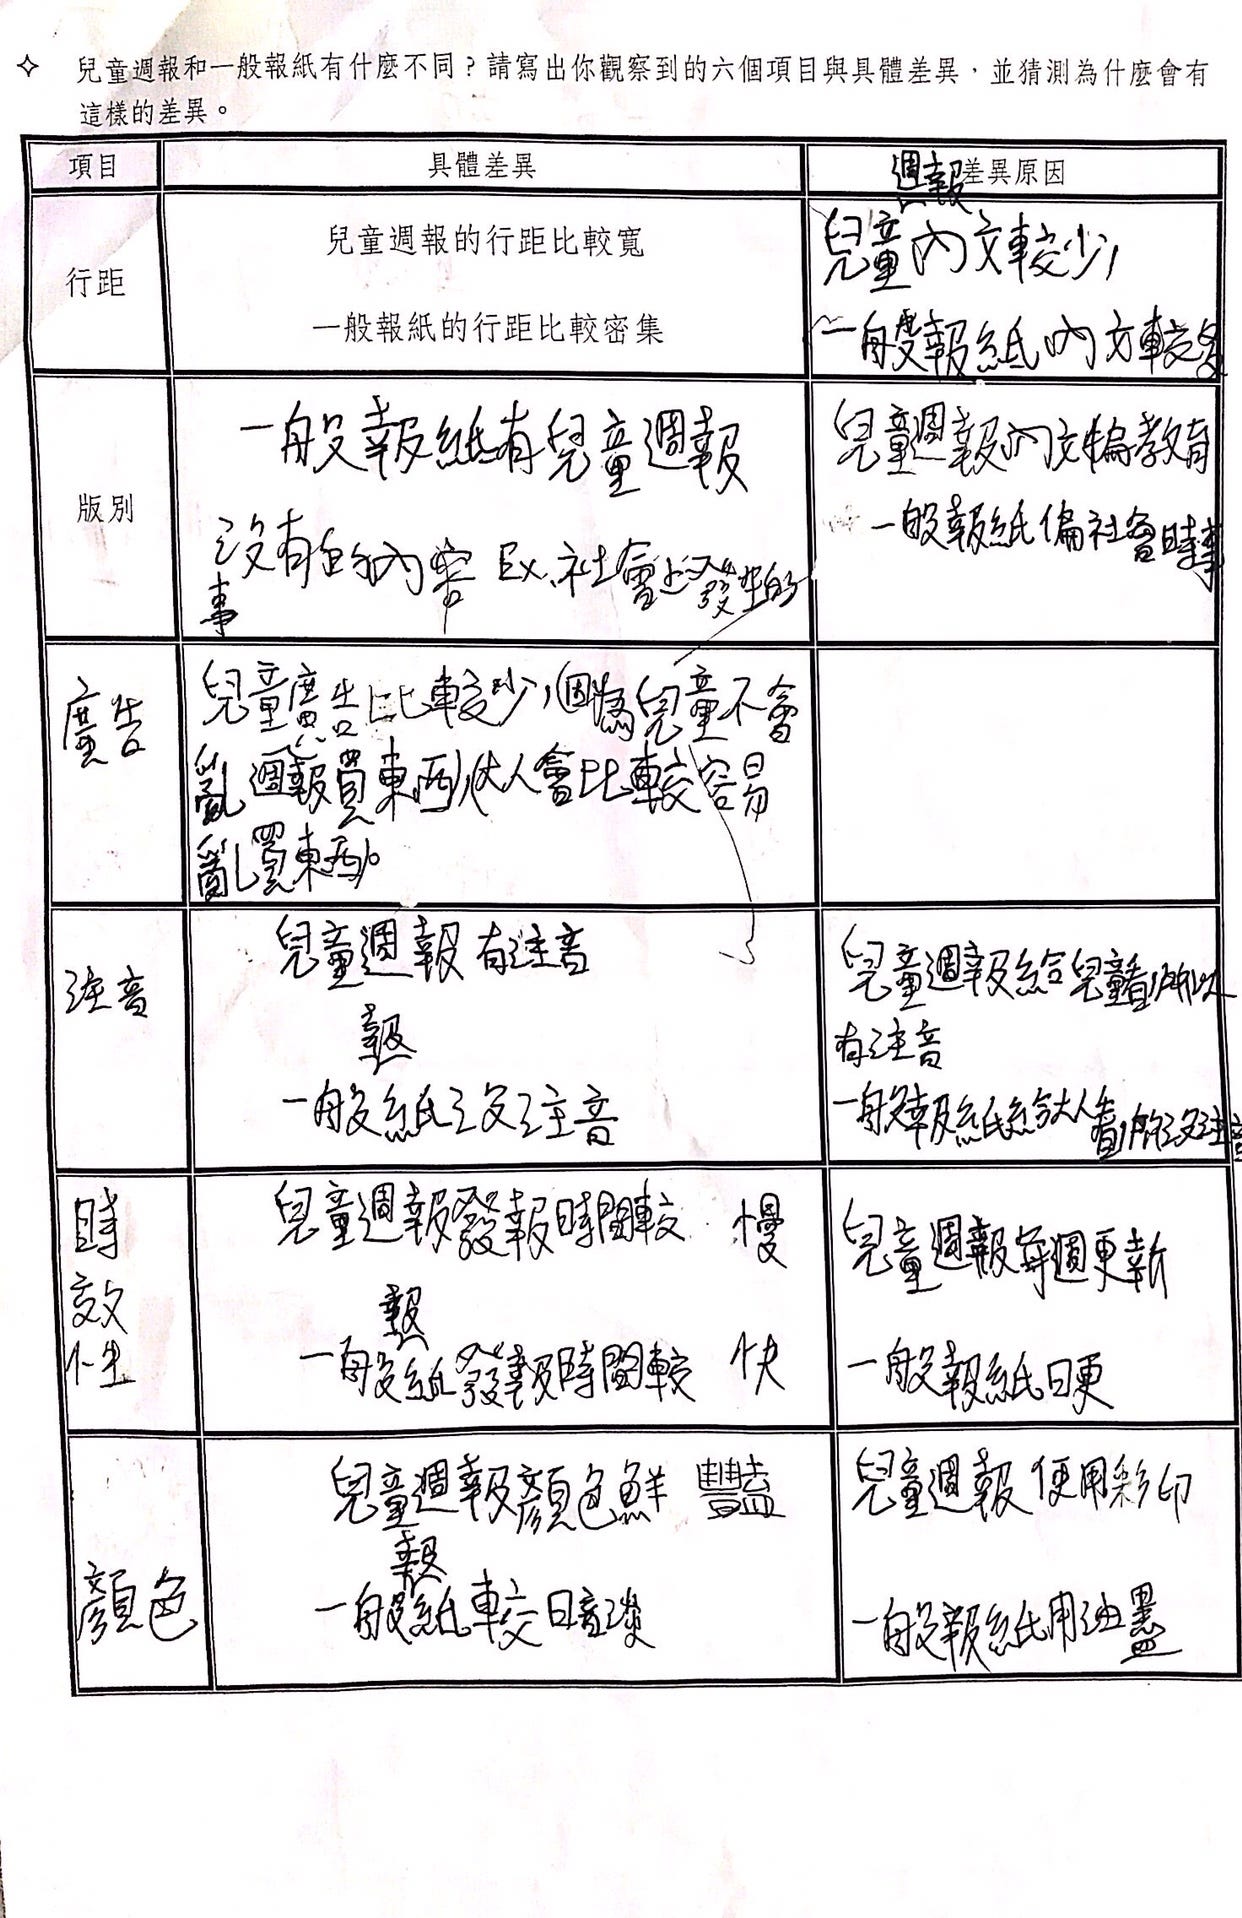 ✧ 兒童週報和一般報紙有什麼不同？請寫出你觀察到的六個項目與具體差異，並猜測為什麼會有
這樣的差異。
項目 具體差異 差異原因
行距
兒童週報的行距比較寬
一般報紙的行距比較密集
週報
兒童內文較少
一般報紙內文較多
版別
一般報紙有兒童週報
沒有的內容 Ex.社會上發生的
事
兒童週報內文偏教育
一般報紙偏社會時事
廣告
兒童廣告比較少，因為兒童不會
亂週報買東西，大人會比較容易
亂買東西。
注音
兒童週報有注音
報
一般紙沒注音
兒童週報給兒童看，所以
有注音
一般報紙給大人看，所以沒注音
時
效
性
兒童週報發報時間較 慢
報
一般紙發報時間較 快
兒童週報每週更新
一般報紙日更
顏色
兒童週報顏色鮮豔
報
一般紙較暗淡
兒童週報使用彩印
一般報紙用油墨